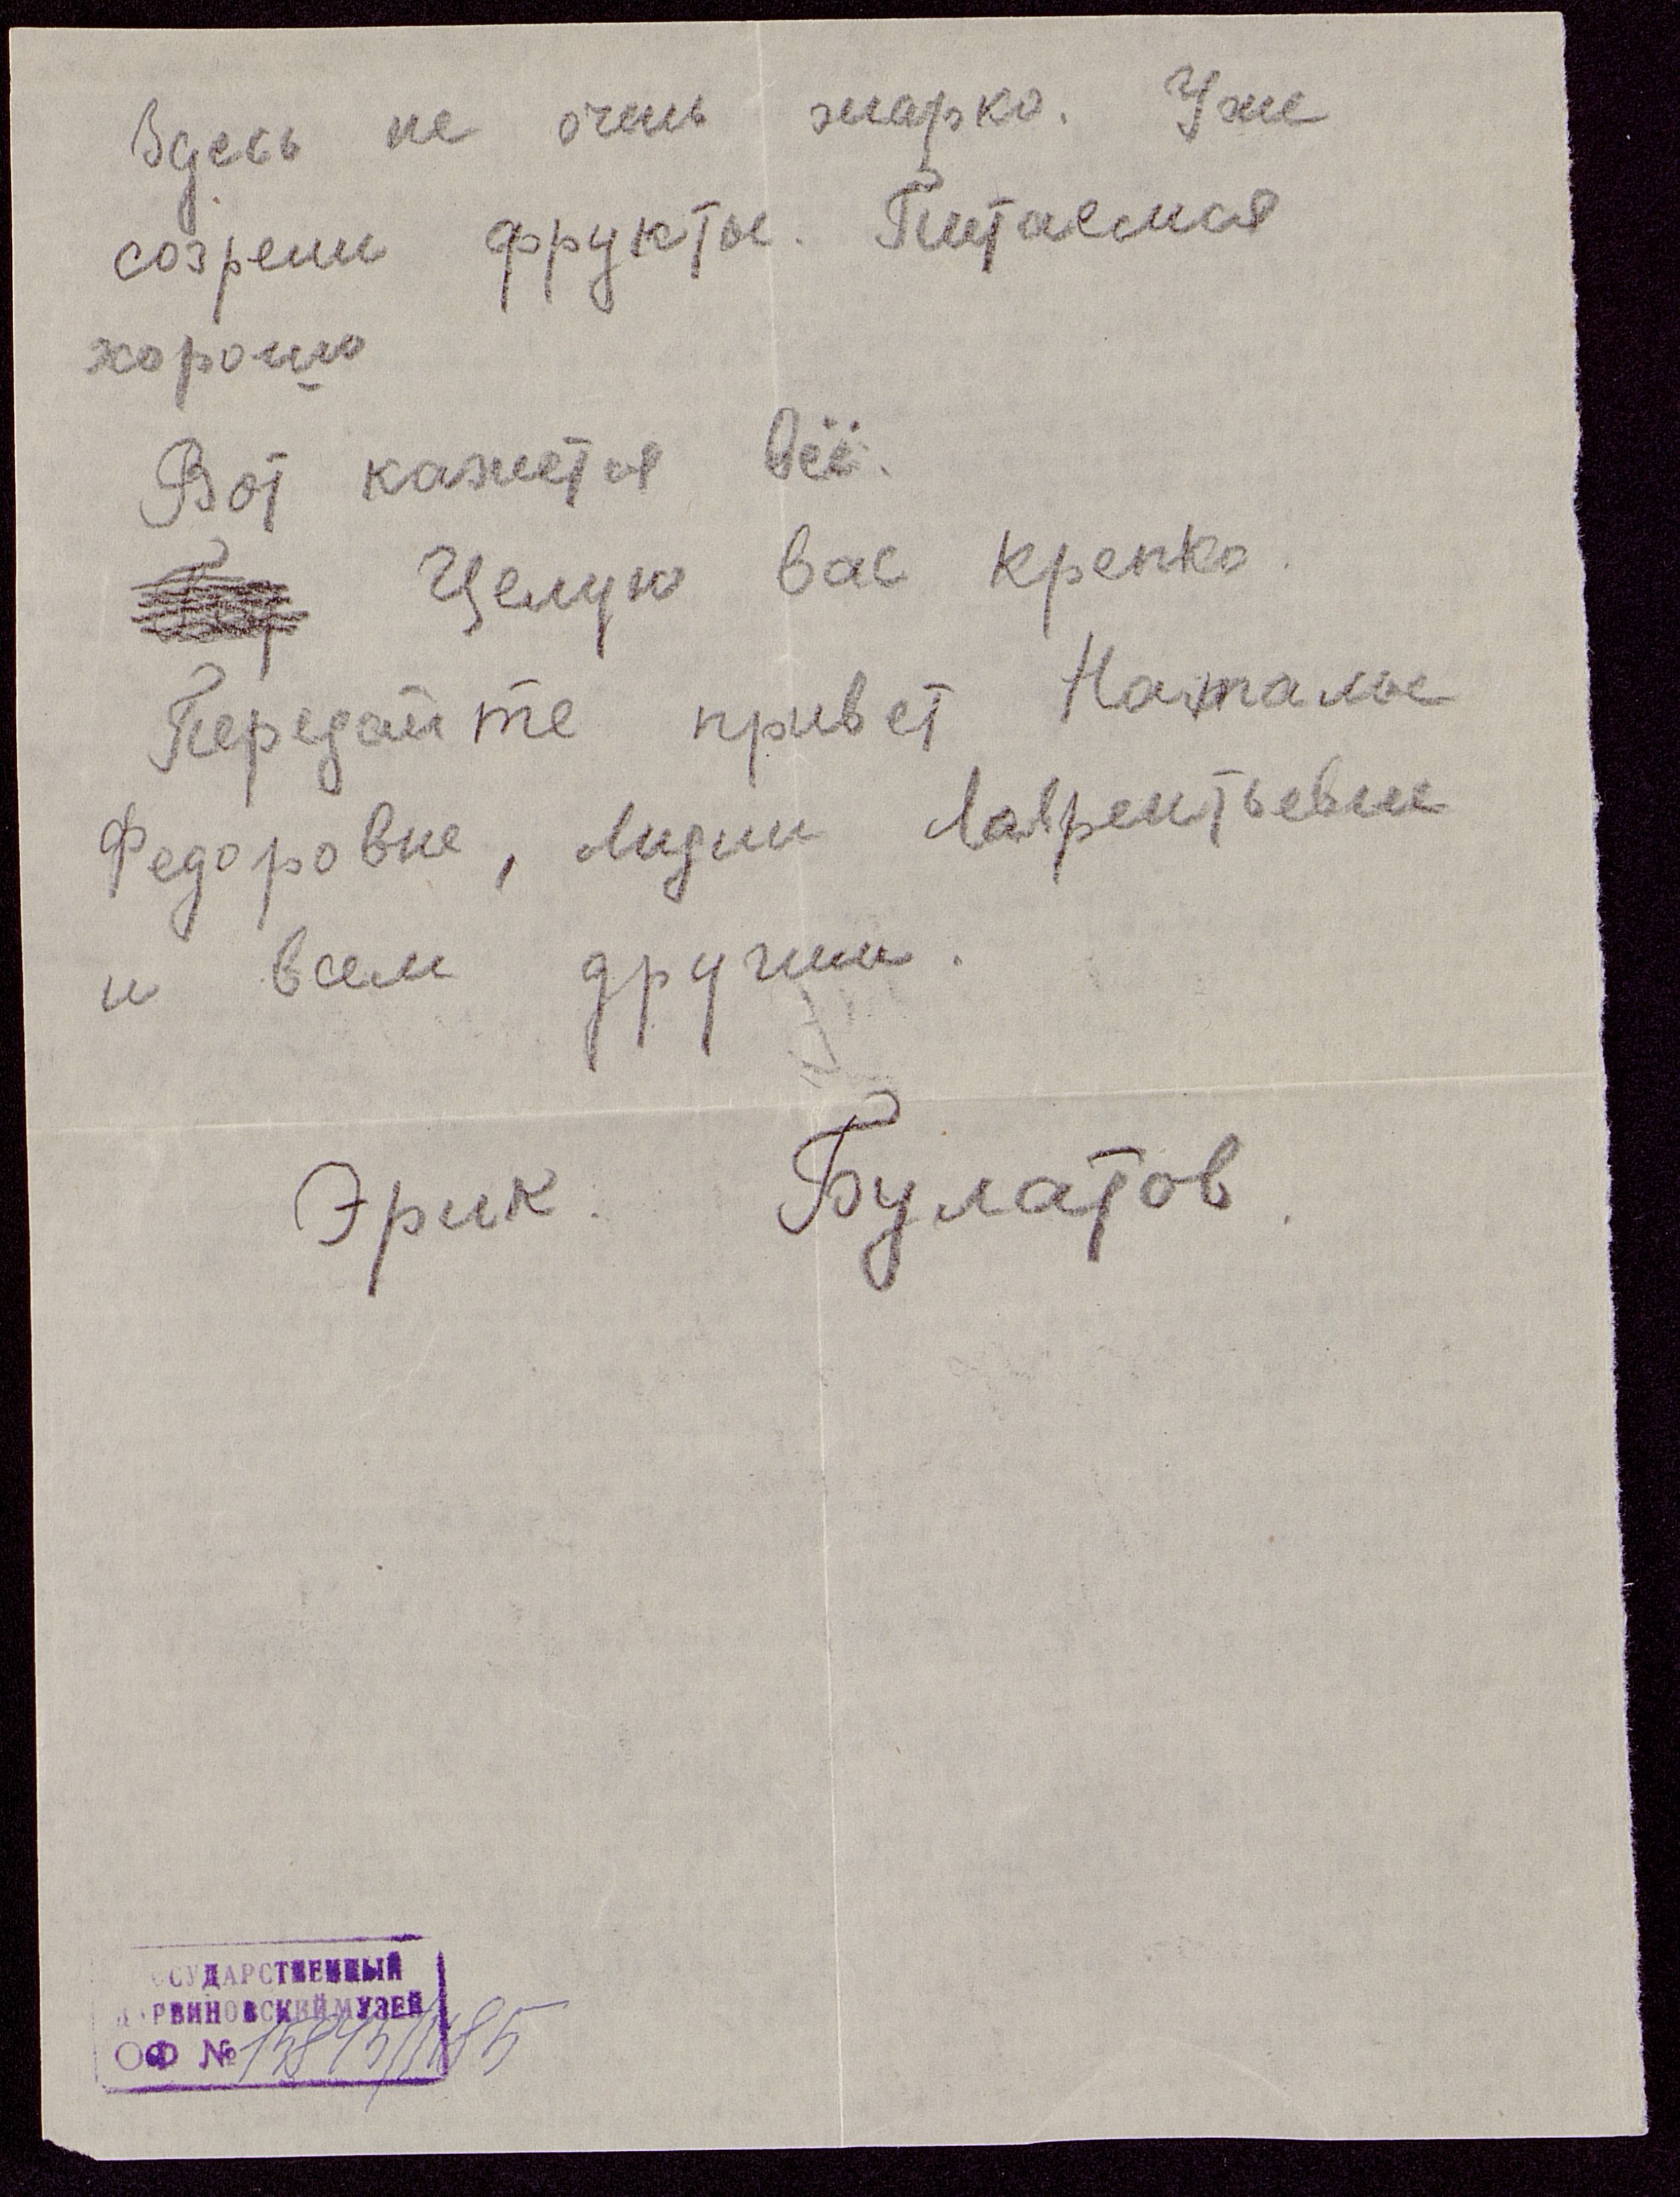 Здесь не очень жарко. Уже
созрели фрукты. Питаемся
хорошо
Вот кажется всё.
Целую вас крепко.
Передайте привет Наталье
Федоровне, Лидии Лаврентьевне
и всем другим.
Эрик. Булатов.
ГОСУДАРСТВЕННЫЙ
ДАРВИНОВСКИЙ МУЗЕЙ
ОФ №